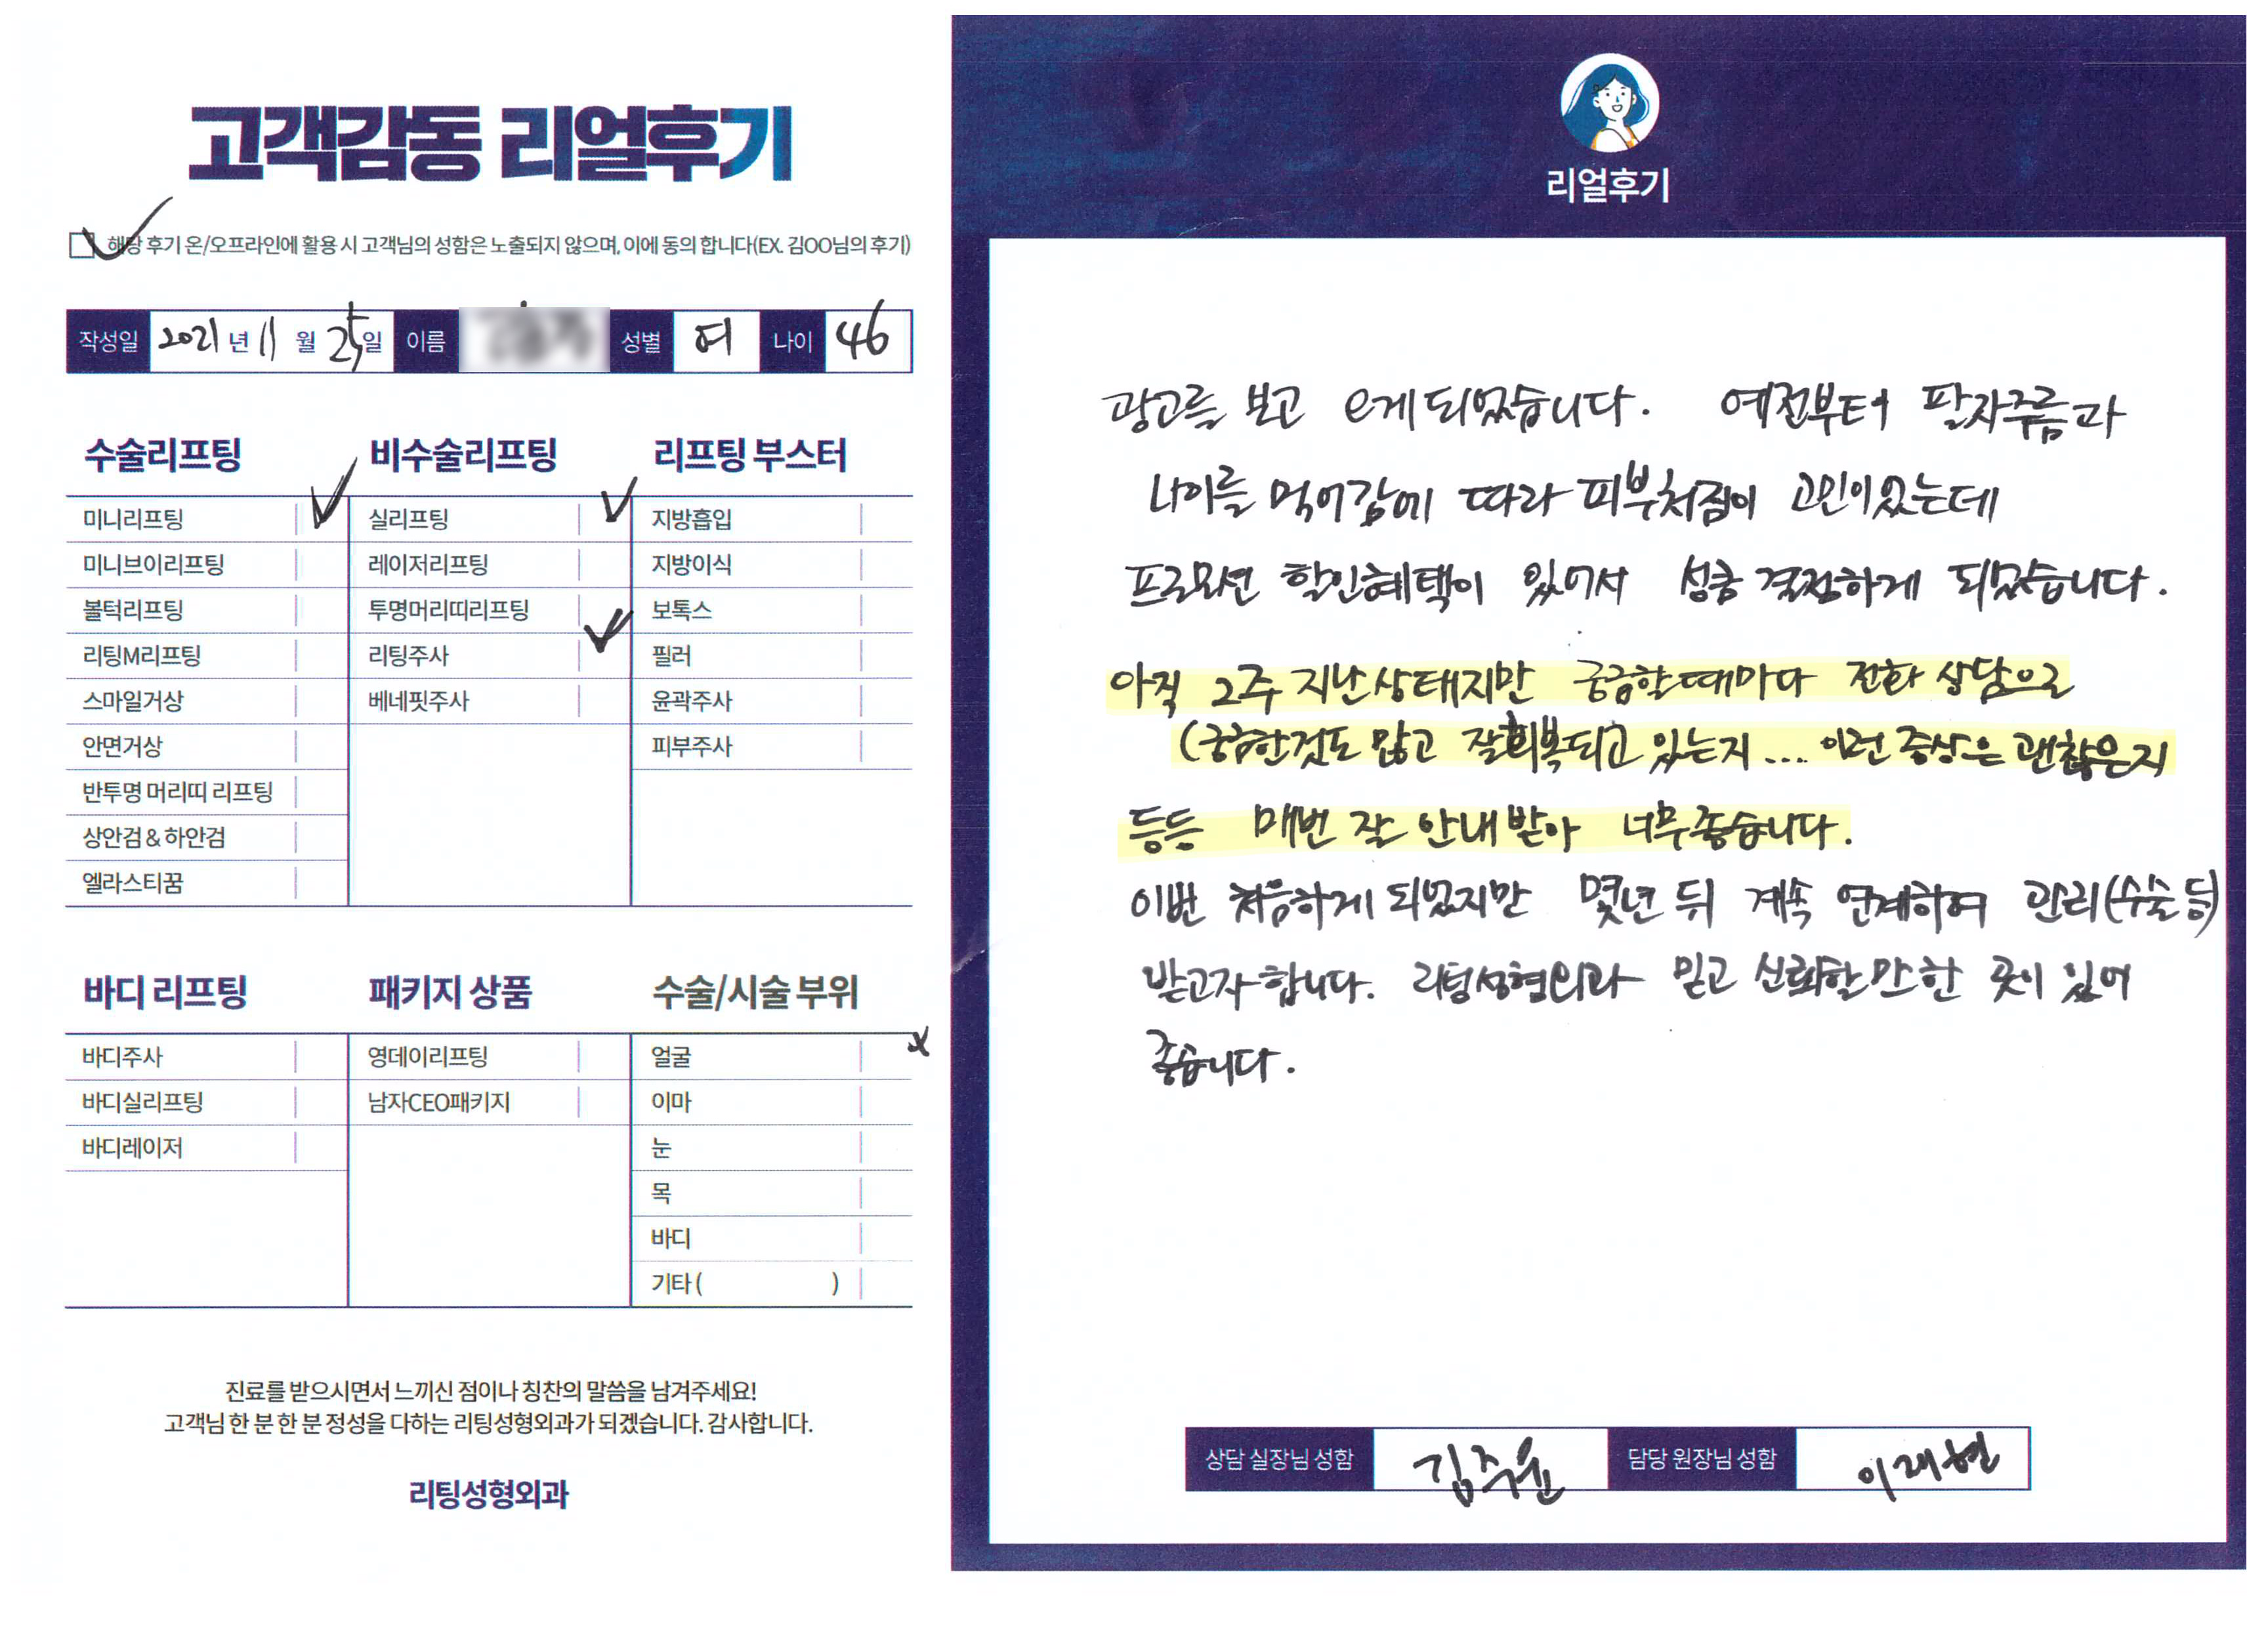 고객감동 리얼후기
해당 후기 온/오프라인에 활용 시 고객님의 성함은 노출되지 않으며, 이에 동의 합니다(EX. 김OO님의 후기)
작성일 2021 년 11 월 25 일 이름 성별 여 나이 46
수술리프팅
미니리프팅
미니브이리프팅
볼턱리프팅
리팅M리프팅
스마일거상
안면거상
반투명 머리띠 리프팅
상안검 & 하안검
엘라스티꿈
비수술리프팅
실리프팅
레이저리프팅
투명머리띠리프팅
리팅주사
베네핏주사
리프팅 부스터
지방흡입
지방이식
보톡스
필러
윤곽주사
피부주사
바디 리프팅
바디주사
바디실리프팅
바디레이저
패키지 상품
영데이리프팅
남자CEO패키지
수술/시술 부위
얼굴
이마
눈
목
바디
기타 ( )
진료를 받으시면서 느끼신 점이나 칭찬의 말씀을 남겨주세요!
고객님 한 분 한 분 정성을 다하는 리팅성형외과가 되겠습니다. 감사합니다.
리팅성형외과
리얼후기
광고를 보고 e게 되었습니다. 예전부터 팔자주름과
나이를 먹어감에 따라 피부처짐이 고민이있는데
프로모션 할인혜택이 있어서 성큼 결정하게 되었습니다.
아직 2주 지난상태지만 궁금할때마다 전화 상담으로
(궁금한것도 많고 잘회복되고 있는지... 이런 증상은 괜찮은지
등등 매번 잘 안내 받아 너무좋습니다.
이번 처음하게 되었지만 몇년 뒤 계속 연계하여 관리(수술 등)
받고자 합니다. 리팅성형외과 믿고 신뢰할만한 곳이 있어
좋습니다.
상담 실장님 성함 김주윤 담당 원장님 성함 이재현